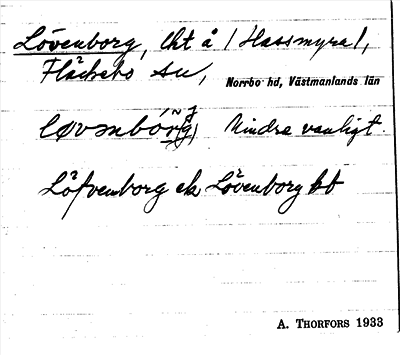 Lövenborg, lht å (Hassmyra),
Fläckebo sn,
Norrbo hd, Västmanlands län
Mindre vanligt.
Löfvenborg ek Lövenborg bt
A. THORFORS 1933